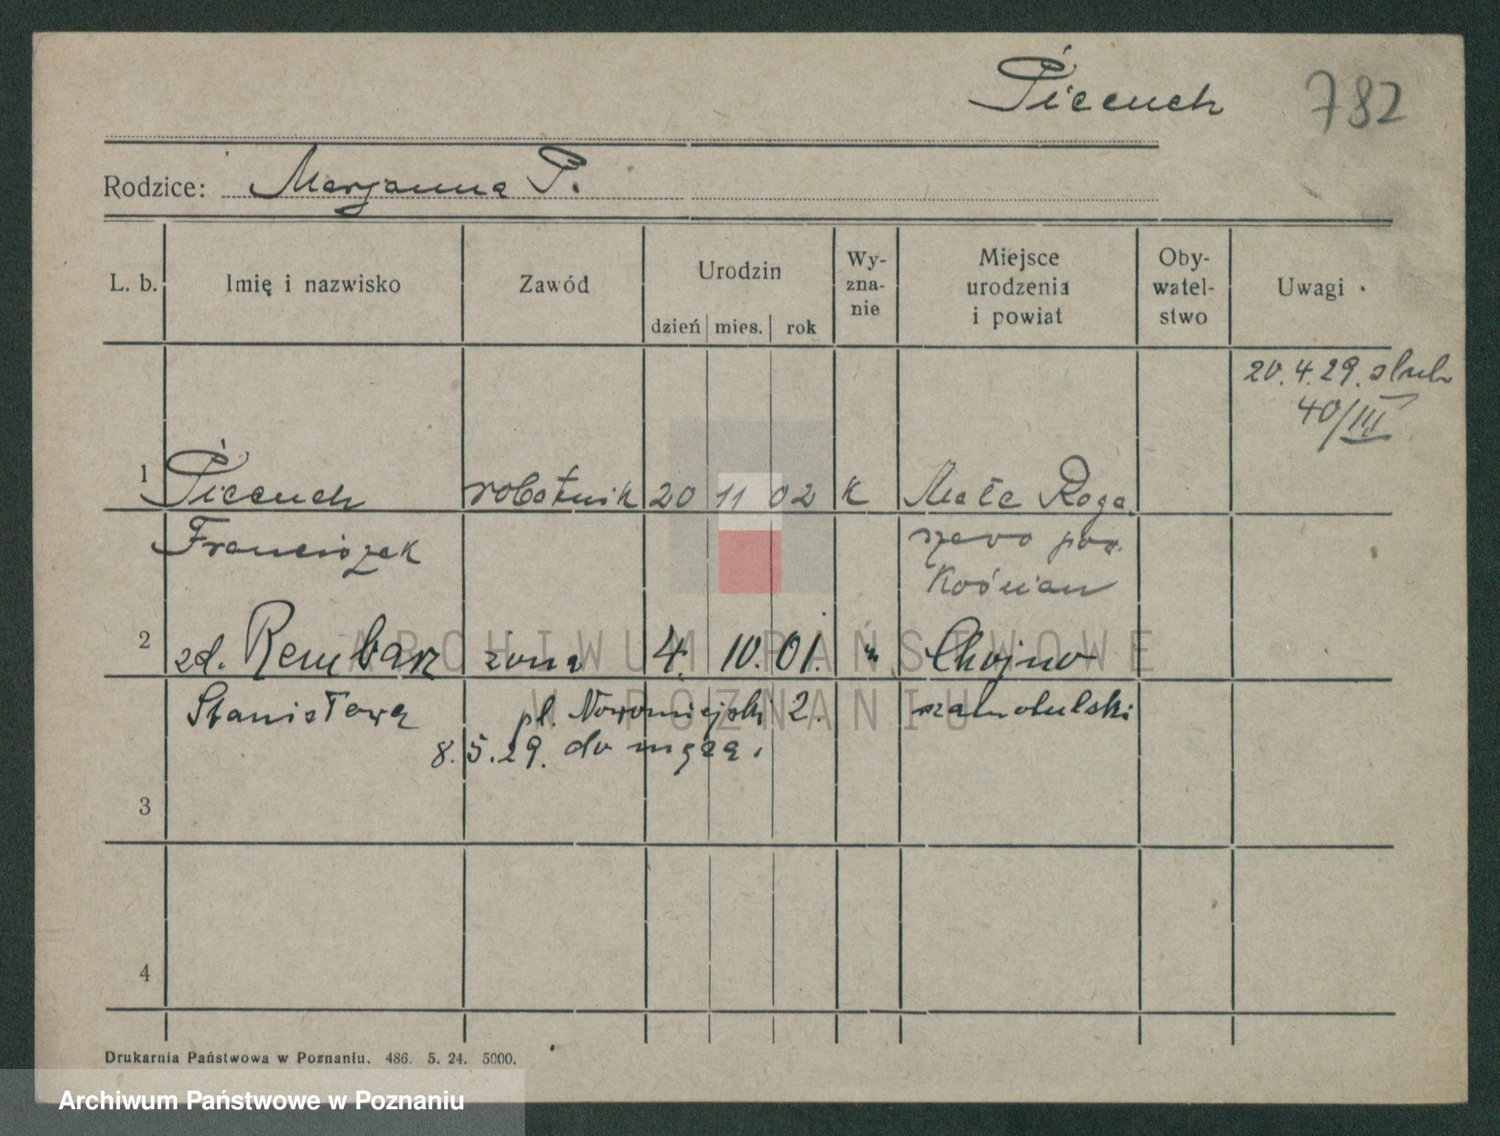 Piecuch 782
Rodzice: Marjanna P.
L. b. Imię i nazwisko Zawód Urodzin Wy-
zna-
nie Miejsce
urodzenia
i powiat Oby-
watel-
stwo Uwagi
dzień mies. rok
20.4.29. ślub
40/III
1 Piecuch robotnik 20 11 02 k Małe Roga
Franciszek szewo pow.
Kościan
2 zd. Rembarz żona 4. 10. 01. " Chojno
Stanisława pl. Nowomiejski 2. szamotulski
8.5.29. do męża.
3
4
Drukarnia Państwowa w Poznaniu. 486. 5. 24. 5000.
ARCHIWUM PAŃSTWOWE
W POZNANIU
Archiwum Państwowe w Poznaniu